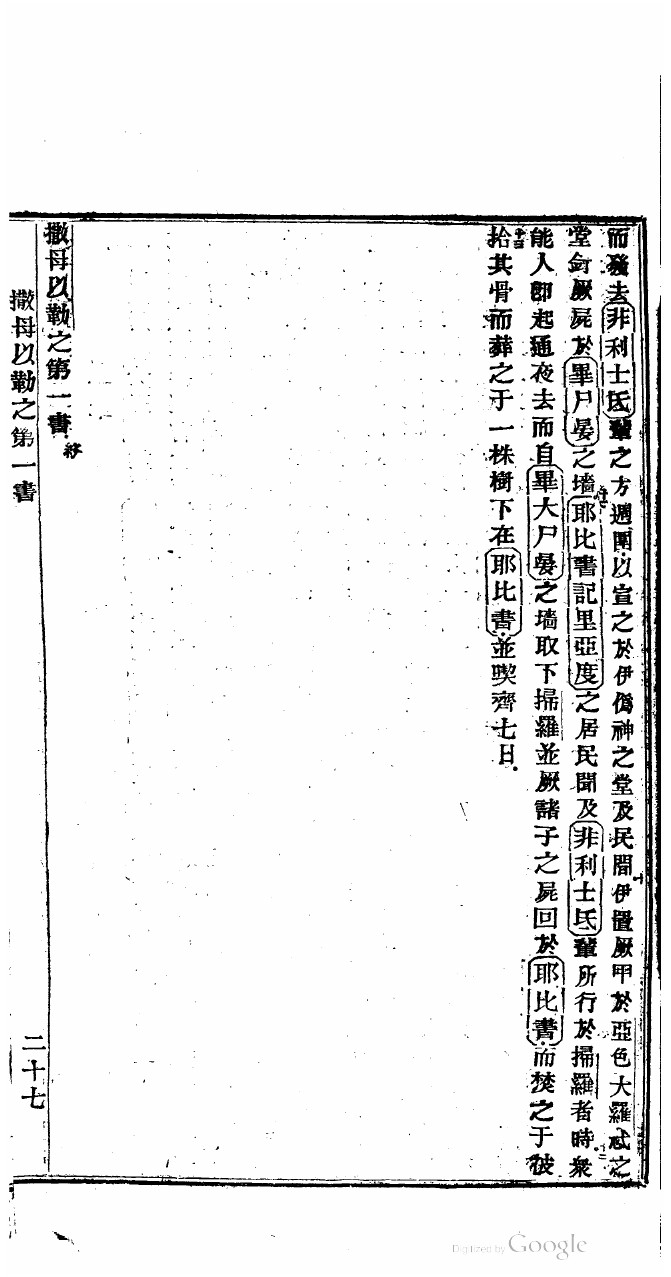 而發去非利士氐輩之方週圍以宣之於伊僞神之堂及民間伊置厥甲於亞色大羅忒之
堂釘厥屍於畢尸晏之墻耶比書記里亞度之居民聞及非利士氐輩所行於掃羅者時衆
能人卽起通夜去而自畢大尸晏之墻取下掃羅並厥諸子之屍回於耶比書而焚之于彼
拾其骨而葬之于一株樹下在耶比書並喫齊七日
撒母以勒之第一書 終
撒母以勒之第一書
二十七
Digitized by Google